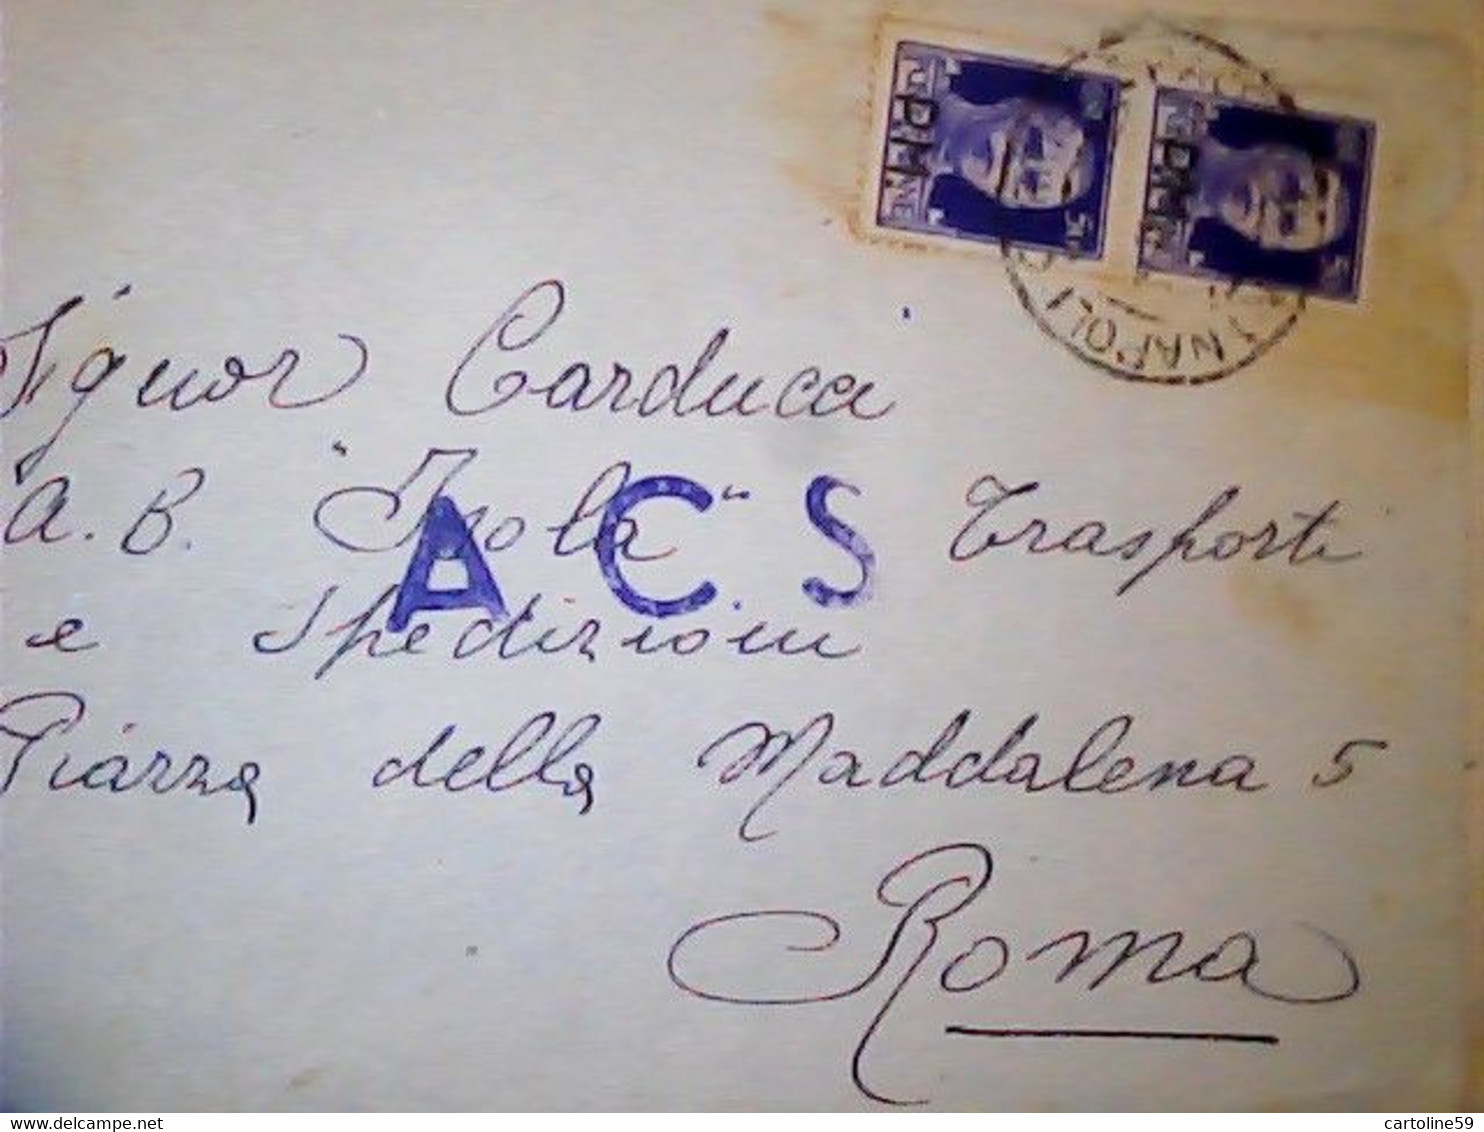 P.M.
P.M.
NAPOLI
Signor Carducci
A. B. "Isola" Trasporti
A C. S
e Spedizioni
Piazza della Maddalena 5
Roma
cartoline59